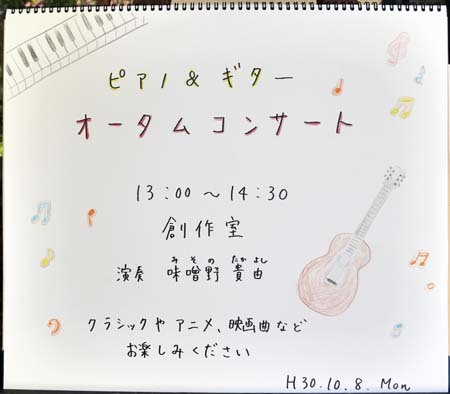 ピアノ & ギター
オータムコンサート
13:00～14:30
創作室
みその たかよし
演奏 味噌野 貴由
クラシックやアニメ、映画曲など
お楽しみください
H30.10.8. Mon